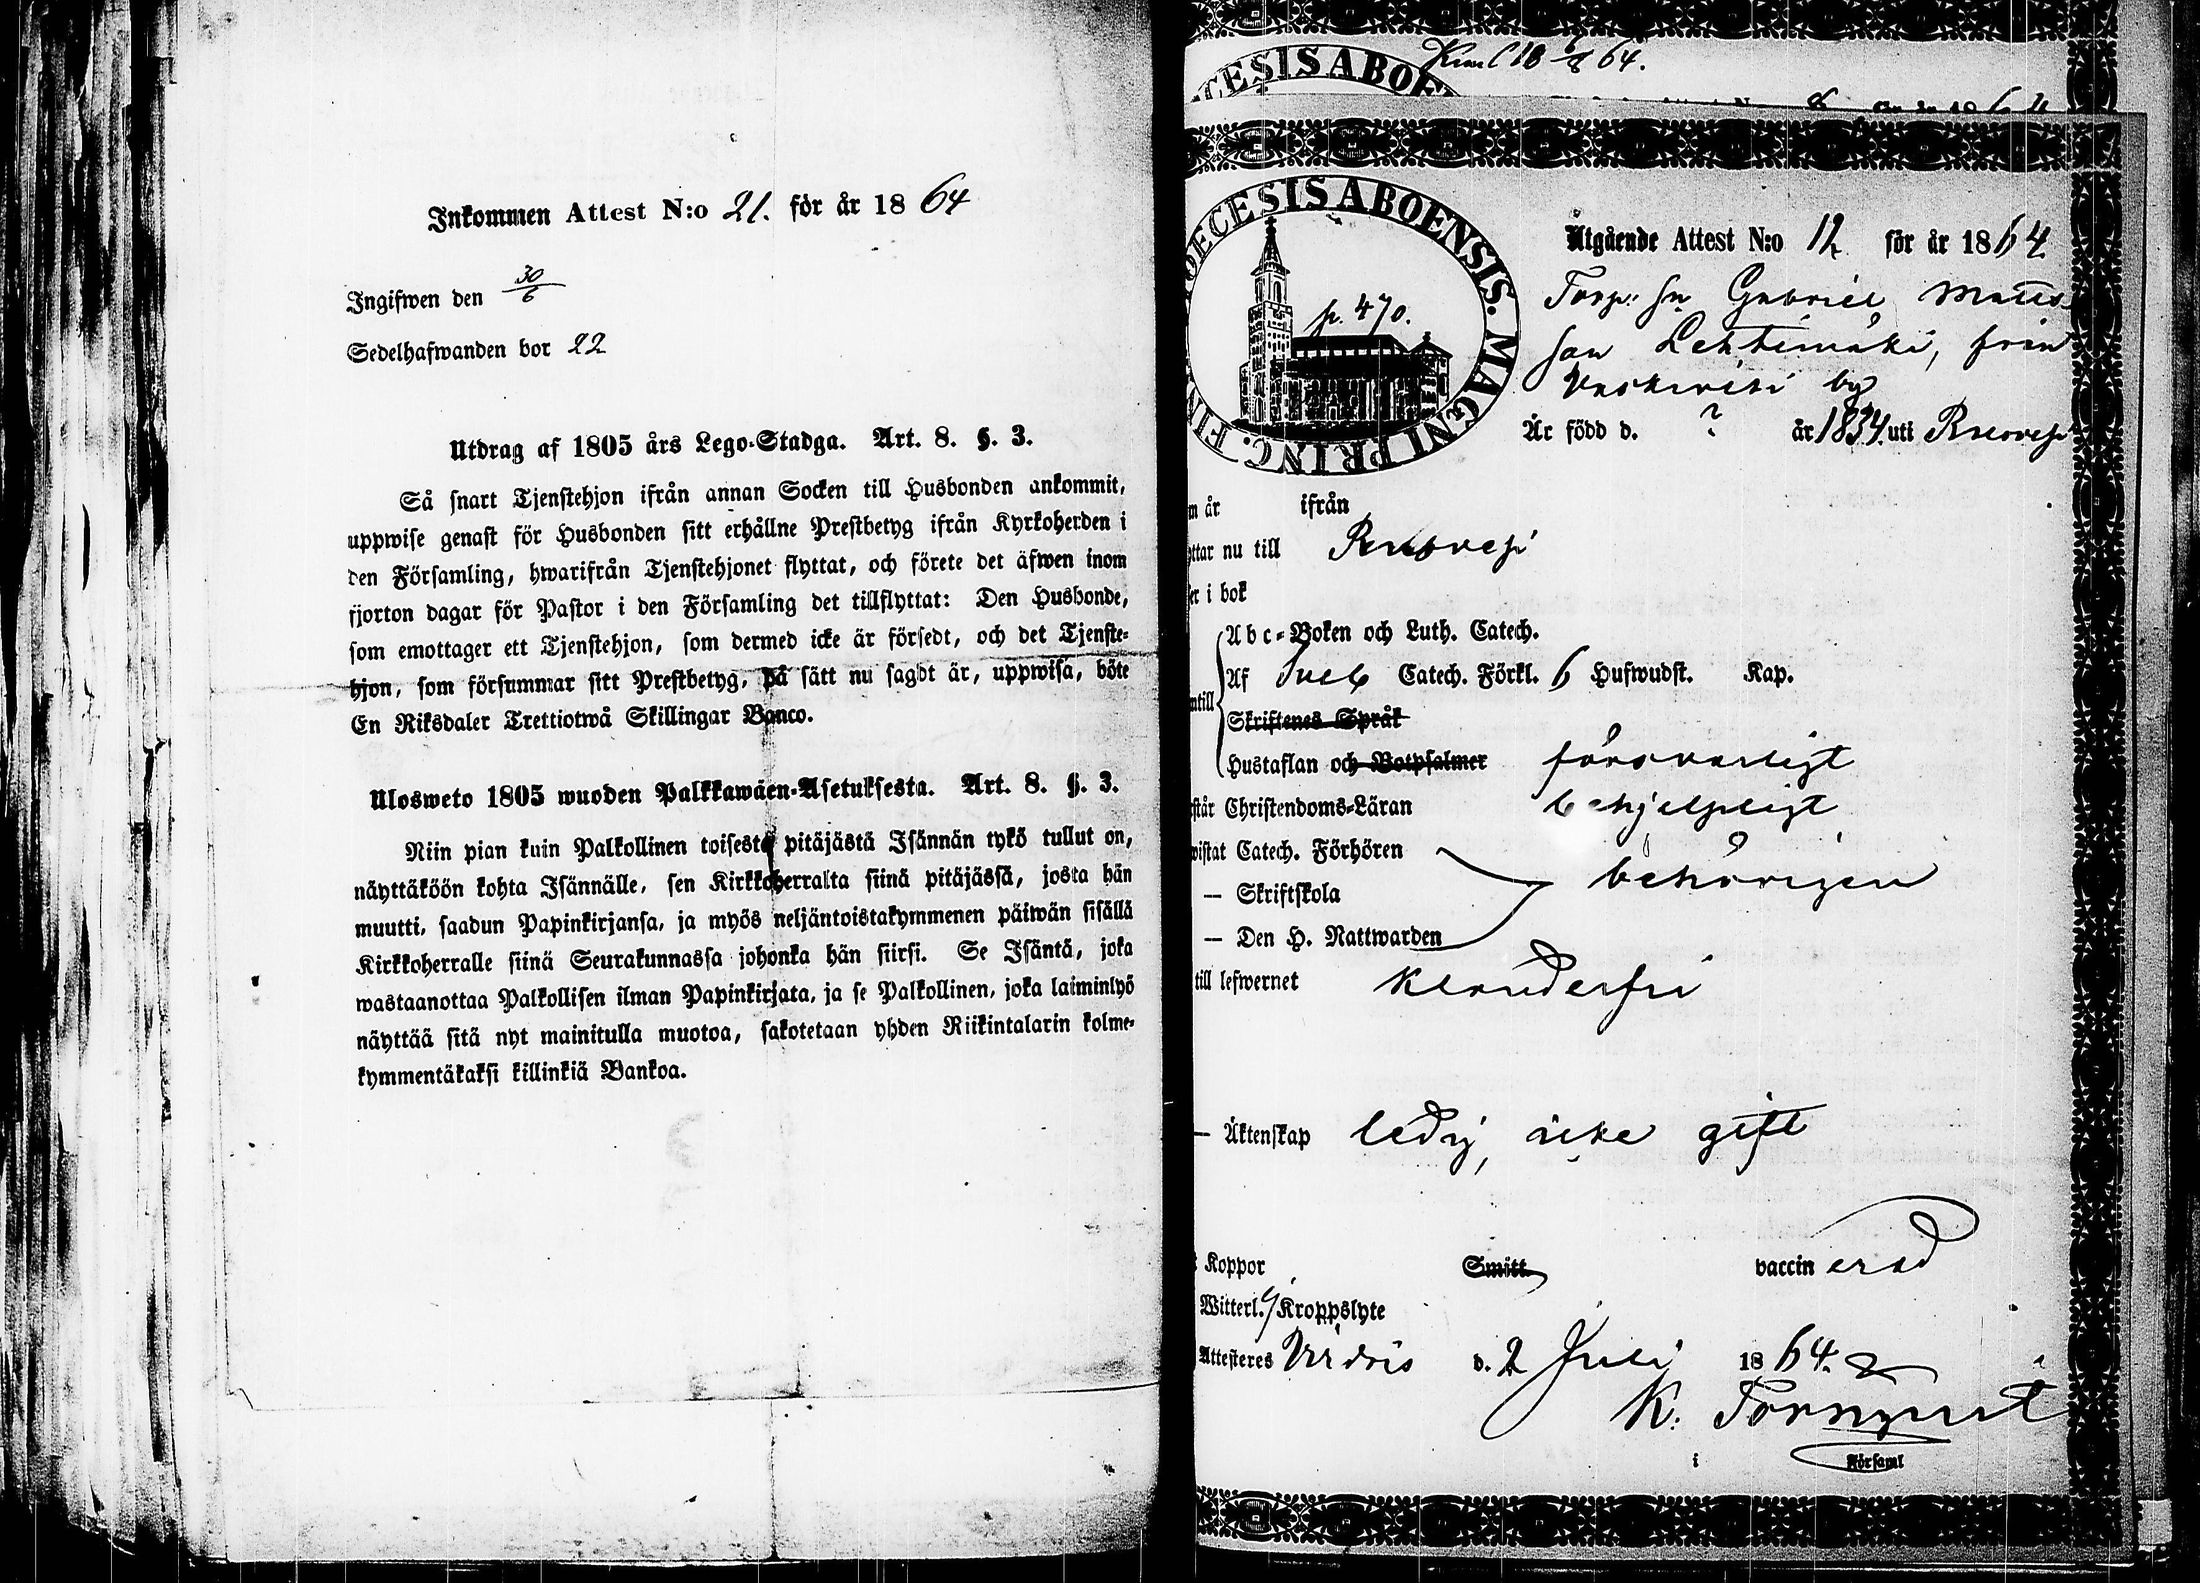 Inkommen Attest N:o 21. för år 1864
Ingifwen den 30/6
Sedelhafwanden bor 22
Utdrag af 1805 års Lego-Stadga. Art. 8. §. 3.
Så snart Tjenstehjon ifrån annan Socken till Husbonden ankommit,
uppwise genast för Husbonden sitt erhållne Prestbetyg ifrån Kyrkoherden i
den Församling, hwarifrån Tjenstehjonet flyttat, och förete det äfwen inom
fjorton dagar för Pastor i den Församling det tillflyttat: Den Husbonde,
som emottager ett Tjenstehjon, som dermed icke är försedt, och det Tjenste-
hjon, som försummar sitt Prestbetyg, på sätt nu sagdt är, uppwisa, böte
En Riksdaler Trettiotwå Skillingar Banco.
Ulosweto 1805 wuoden Palkkawäen-Asetuksesta. Art. 8. §. 3.
Niin pian kuin Palkollinen toisesta pitäjästä Isännän tykö tullut on,
näyttäköön kohta Isännälle, sen Kirkkoherralta siinä pitäjässä, josta hän
muutti, saadun Papinkirjansa, ja myös neljäntoistakymmenen päiwän sisällä
Kirkkoherralle siinä Seurakunnassa johonka hän siirsi. Se Isäntä, joka
wastaanottaa Palkollisen ilman Papinkirjata, ja se Palkollinen, joka laiminlyö
näyttää sitä nyt mainitulla muotoa, sakotetaan yhden Riikintalarin kolme-
kymmentäkaksi killinkiä Bankoa.
64.
CESIS ABOE
8 64
OECESIS ABOENSIS. MAGNI PRINC. FIN
p. 470.
Utgående Attest N:o 12 för år 1864.
Torp: sn Gabriel Matts-
son Lehtimäki, från
by
Är född d. ? år 1834. uti Ruovesi
m år ifrån
yttar nu till Ruovesi
ser i bok
Abc-Boken och Luth. Catech.
Af Sveb Catech. Förkl. 6 Hufwudst. Kap.
ntill
Skriftenes Språk
Hustaflan och Botpsalmer försvarligt
rstår Christendoms-Läran behjelpligt
wistat Catech. Förhören
— Skriftskola behörigen
— Den H. Nattwarden
till lefwernet klanderfri
— Äktenskap ledig, icke gift
Koppor Smitt vaccinerad
Witterl. Kroppslyte
Attesteres Virdois d. 2 Juli 1864.
K. Törnqvist
i Församl